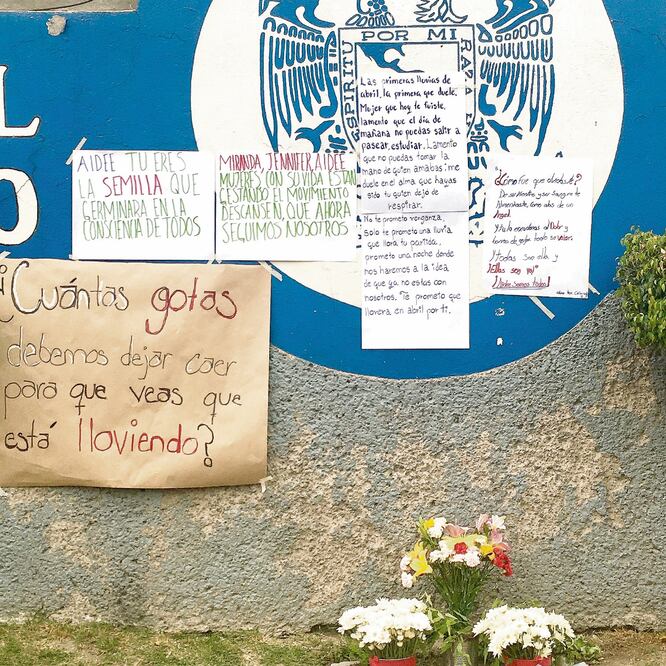 L
O
POR MI
ESPIRITU
RAZA
AIDEE TU ERES
LA SEMILLA QUE
GERMINARA EN LA
CONSCIENCIA DE TODOS
MIRANDA, JENNIFER, AIDEE
MUJERES CON SU VIDA ESTAN
GESTANDO EL MOVIMIENTO
DESCANSEN, QUE AHORA
SEGUIMOS NOSOTROS
Las primeras lluvias de
abril, la primera que duele.
Mujer que hoy te fuiste,
lamento que el día de
mañana no puedas salir a
pasear, estudiar. Lamento
que no puedas tomar la
mano de quien amabas; me
duele en el alma que hayas
sido tu quien dejó de
respirar.
No te prometo venganza,
Solo te prometo una lluvia
que llora tu partida,
prometo una noche donde
nos haremos a la idea
de que ya no estas con
nosotros. Te prometo que
lloverá en abril por ti.
¿Cómo fue que olvidaste?
Angel
todas son ella y
¡Ellas son yo!"
¿Cuántas gotas
debemos dejar caer
para que veas que
está lloviendo?